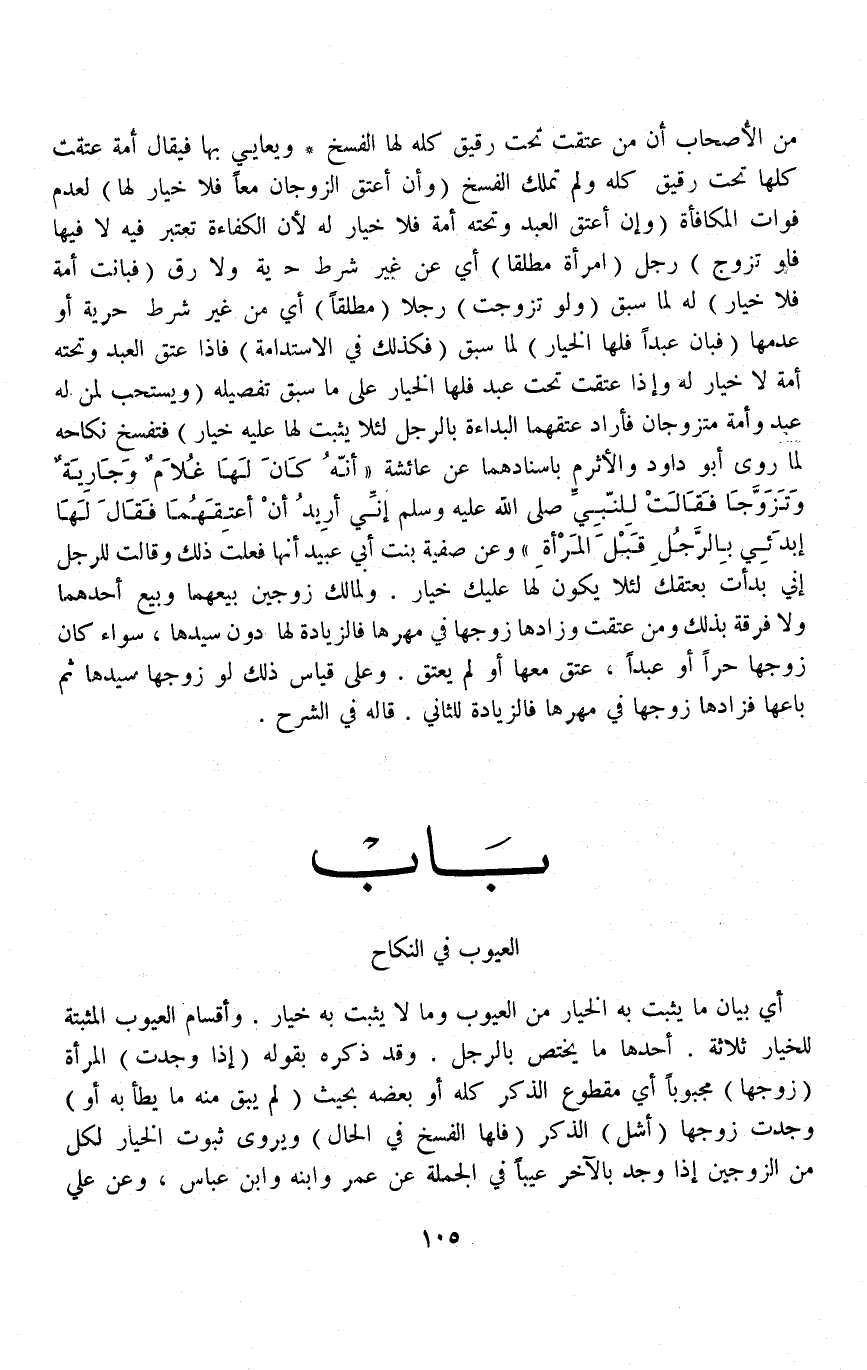 من الأصحاب أن من عتقت تحت رقيق كله لها الفسخ * ويعايي بها فيقال أمة عتقت
كلها تحت رقيق كله ولم تملك الفسخ (وأن أعتق الزوجان معاً فلا خيار لها) لعدم
فوات المكافأة (وإن أعتق العبد وتحته أمة فلا خيار له لأن الكفاءة تعتبر فيه لا فيها
فلو تزوج) رجل (امرأة مطلقا) أي عن غير شرط حرية ولا رق (فبانت أمة
فلا خيار) له لما سبق (ولو تزوجت) رجلا (مطلقاً) أي من غير شرط حرية أو
عدمها (فبان عبداً فلها الخيار) لما سبق (فكذلك في الاستدامة) فاذا عتق العبد وتحته
أمة لا خيار له وإذا عتقت تحت عبد فلها الخيار على ما سبق تفصيله (ويستحب لمن له
عبد وأمة متزوجان فأراد عتقهما البداءة بالرجل لئلا يثبت لها عليه خيار) فتفسخ نكاحه
لما روى أبو داود والأثرم باسنادهما عن عائشة « أنَّهُ كَانَ لَهَا غُلاَمٌ وَجَارِيَةٌ
وَتَزَوَّجَا فَقَالَتْ لِلنَّبِيِّ صلى الله عليه وسلم إنِّي أريدُ أنْ أعتِقَهُمَا فَقَالَ لَهَا
إبدَئِي بِالرَّجُلِ قَبْلَ المَرْأةِ » وعن صفية بنت أبي عبيد أنها فعلت ذلك وقالت للرجل
إني بدأت بعتقك لئلا يكون لها عليك خيار . ولمالك زوجين بيعهما وبيع أحدهما
ولا فرقة بذلك ومن عتقت وزادها زوجها في مهرها فالزيادة لها دون سيدها ، سواء كان
زوجها حراً أو عبداً ، عتق معها أو لم يعتق . وعلى قياس ذلك لو زوجها سيدها ثم
باعها فزادها زوجها في مهرها فالزيادة للثاني . قاله في الشرح .
بَابْ
العيوب في النكاح
أي بيان ما يثبت به الخيار من العيوب وما لا يثبت به خيار . وأقسام العيوب المثبتة
للخيار ثلاثة . أحدها ما يختص بالرجل . وقد ذكره بقوله (إذا وجدت) المرأة
(زوجها) مجبوباً أي مقطوع الذكر كله أو بعضه بحيث (لم يبق منه ما يطأ به أو)
وجدت زوجها (أشل) الذكر (فلها الفسخ في الحال) ويروى ثبوت الخيار لكل
من الزوجين إذا وجد بالآخر عيباً في الجملة عن عمر وابنه وابن عباس ، وعن علي
١٠٥